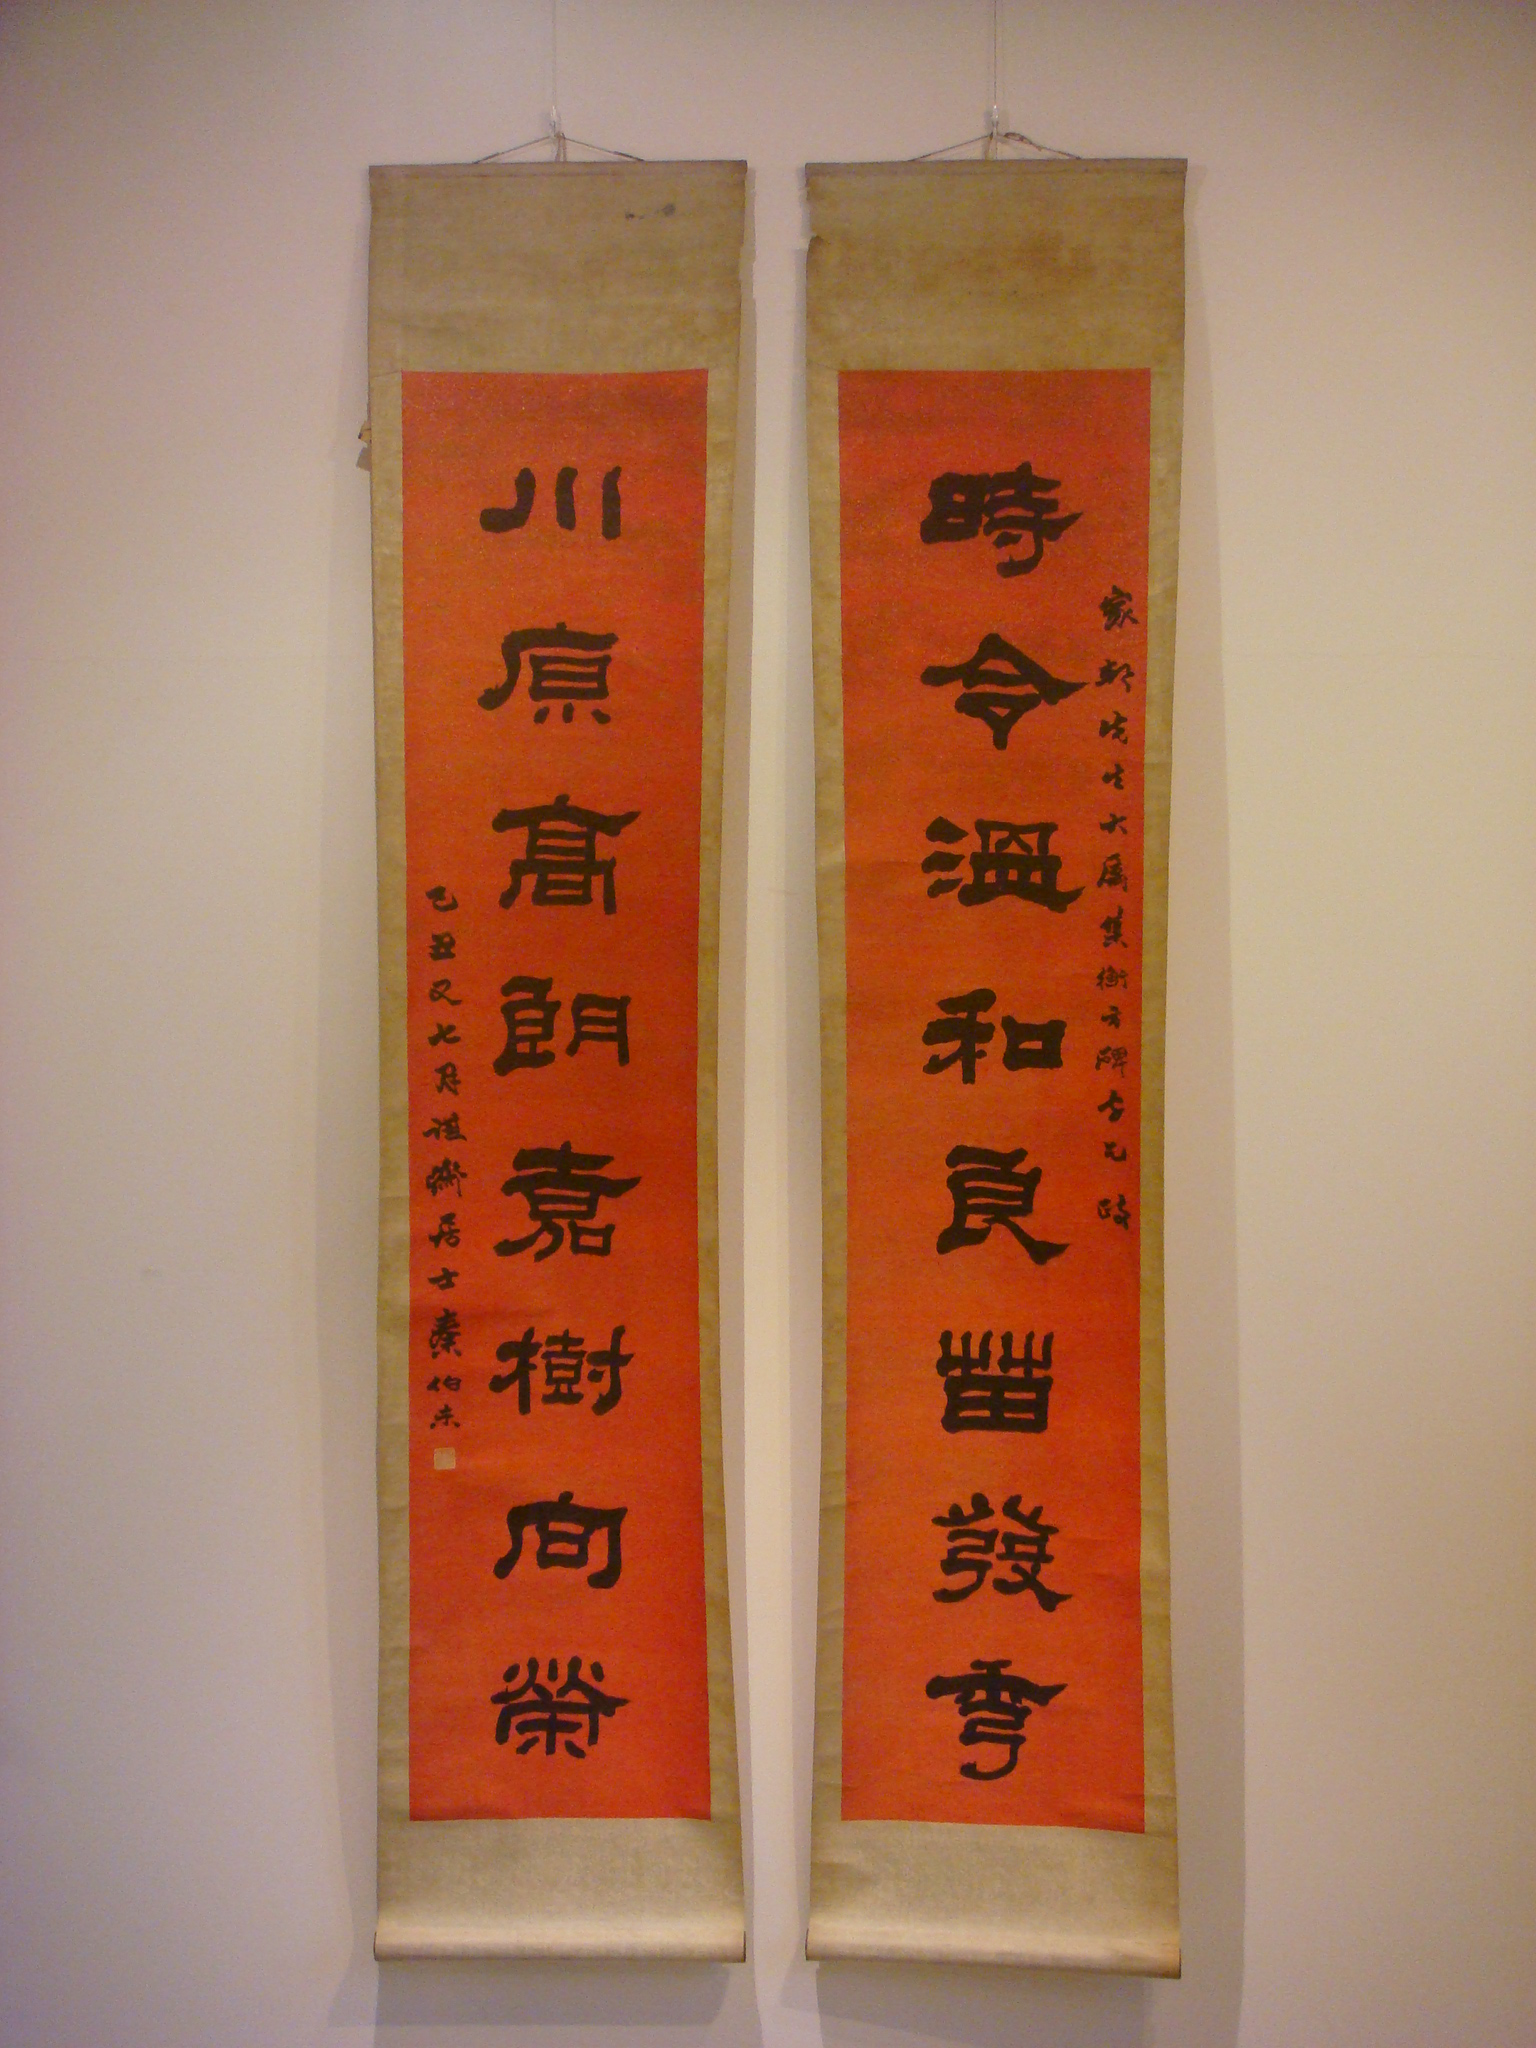 時令溫和良苗發秀
家彭先生大屬集衡方碑字乞政
川原高朗嘉樹向榮
己丑又七月謙齋居士秦伯未